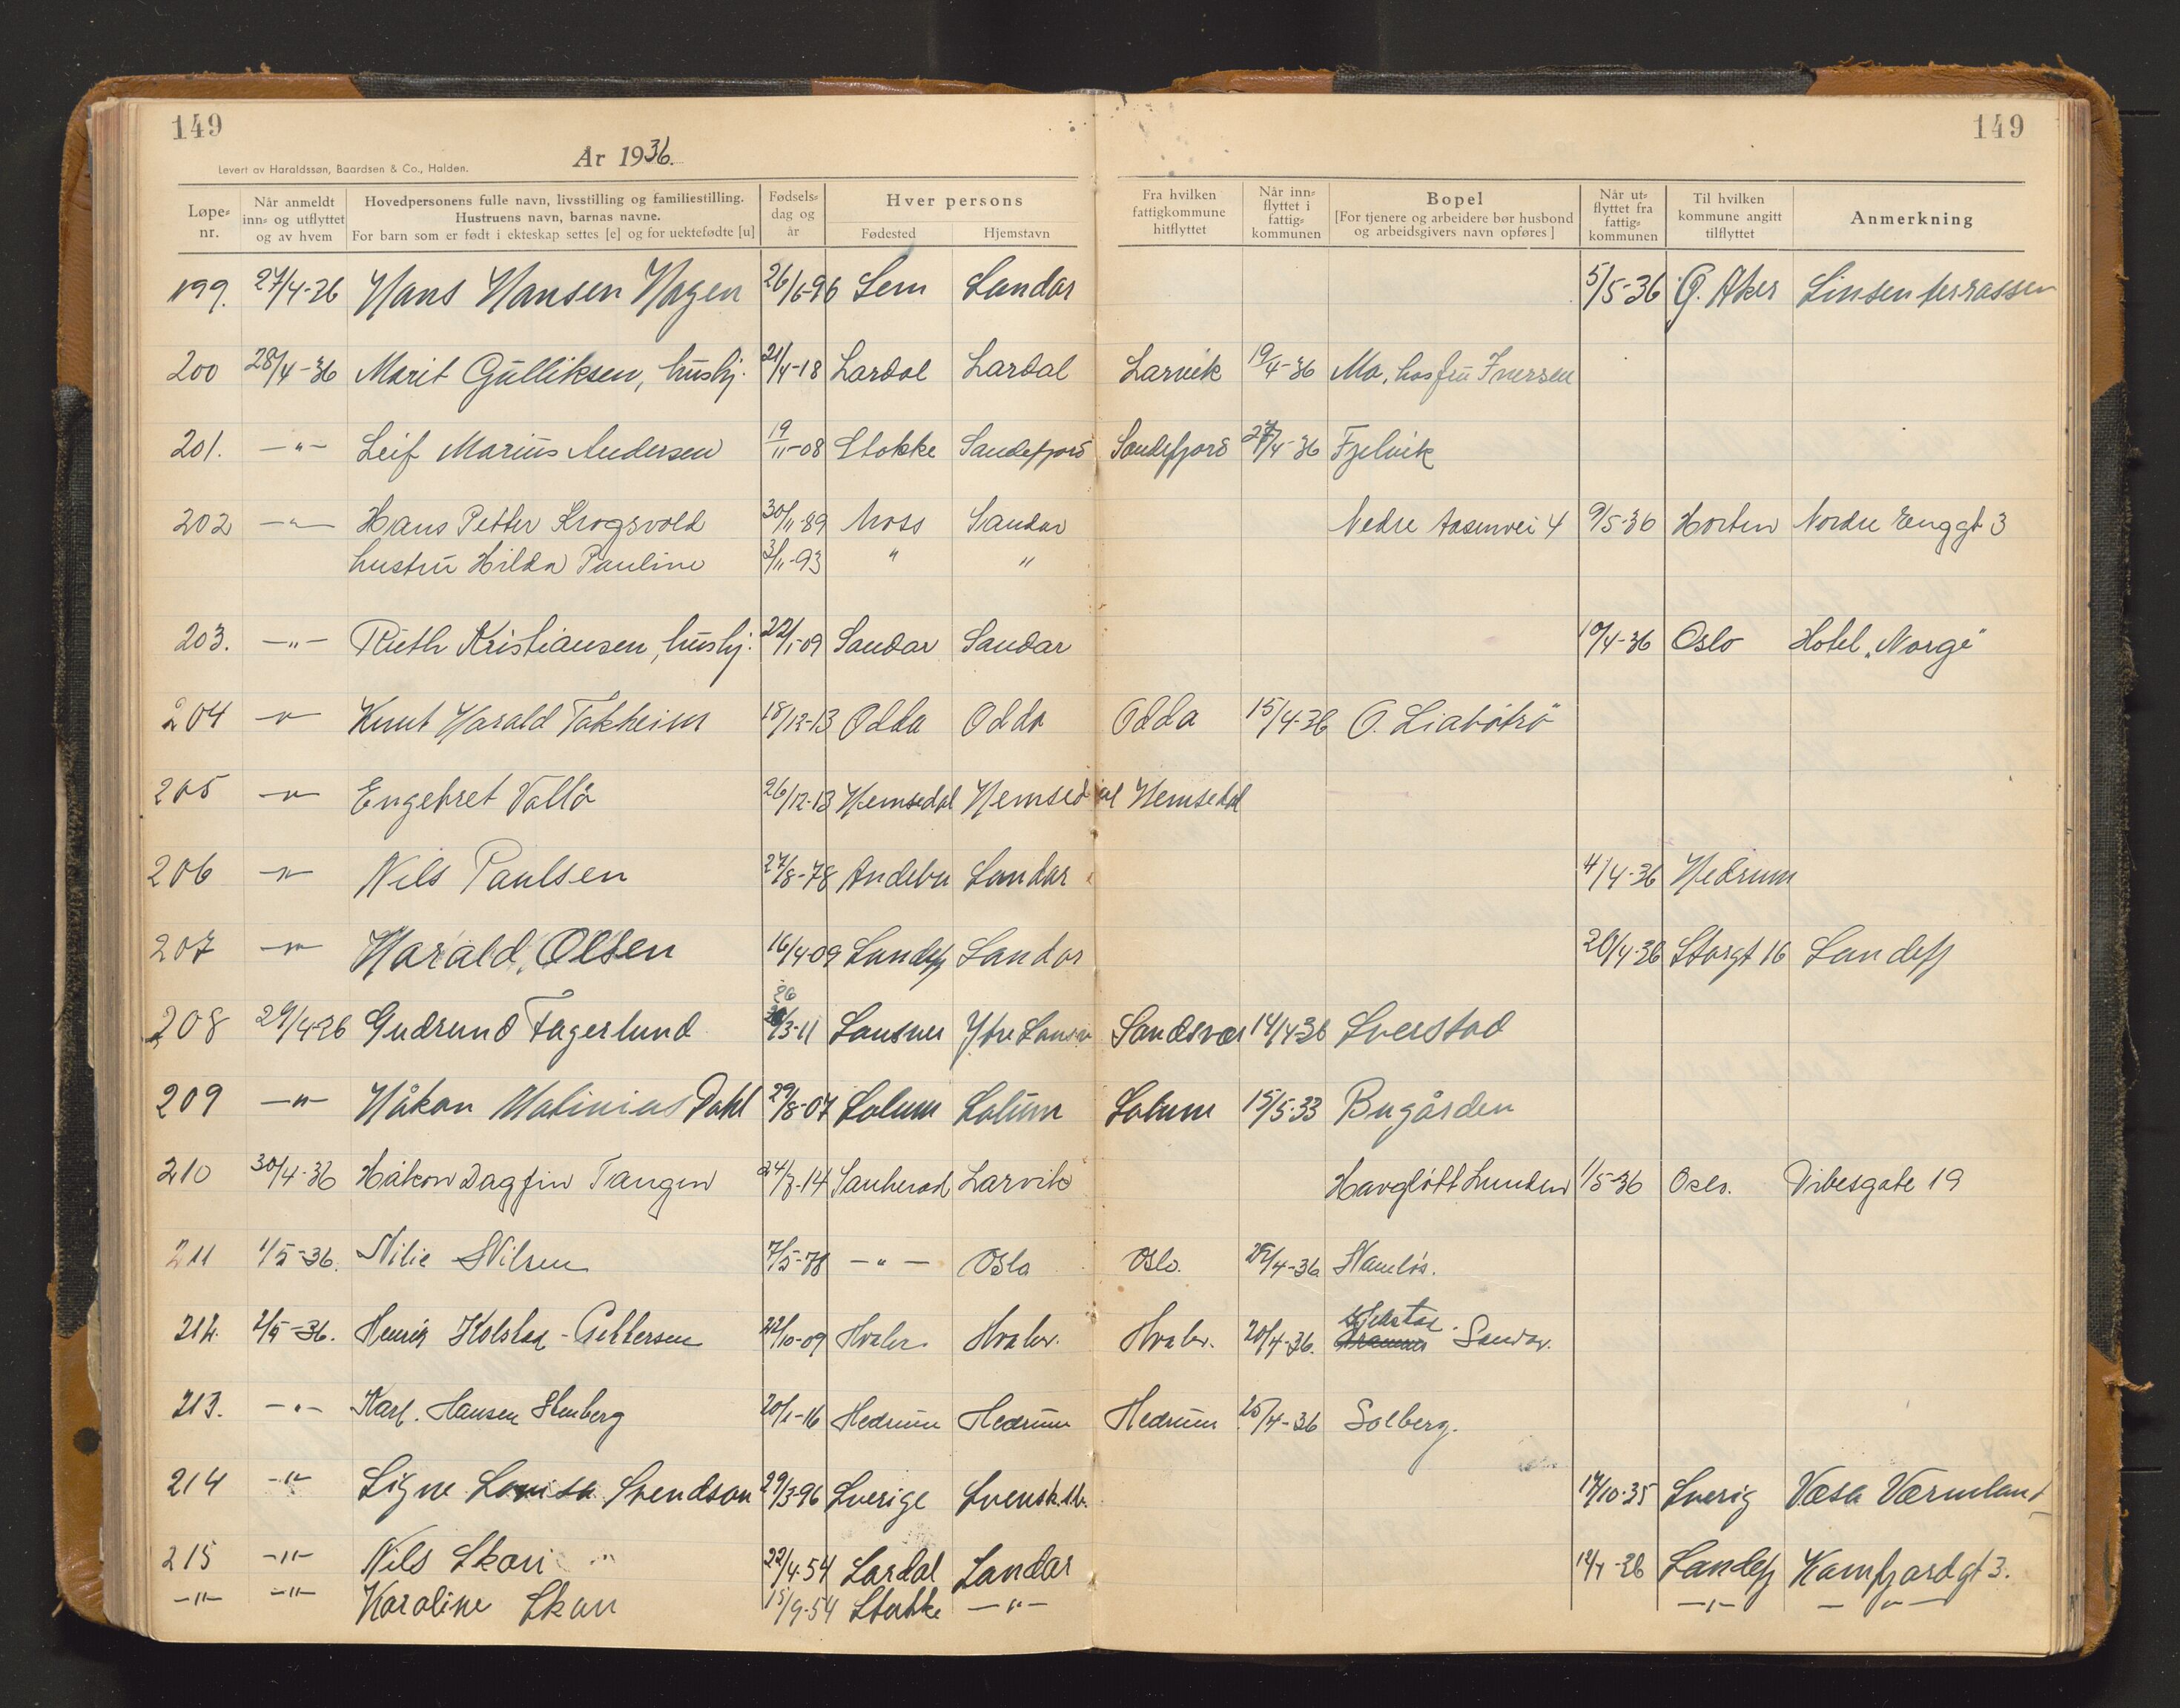 149
149
År 1936.
Levert av Haraldssøn, Baardsen & Co., Halden.
Løpe-nr. Når anmeldt inn- og utflyttet og av hvem Hovedpersonens fulle navn, livsstilling og familiestilling. Hustruens navn, barnas navne. For barn som er født i ekteskap settes [e] og for uektefødte [u] Fødsels-dag og år Hver persons Fødested Hjemstavn Fra hvilken fattigkommune hitflyttet Når inn-flyttet i fattig-kommunen Bopel [For tjenere og arbeidere bør husbond og arbeidsgivers navn opføres] Når ut-flyttet fra fattig-kommunen Til hvilken kommune angitt tilflyttet Anmerkning
199. 27/4-36 Hans Hansen Hagen 26/6-96 Sem Sandar 5/5-36 Ø. Aker Linsenterrassen
200 28/4-36 Marit Gulliksen, hushj. 21/4-18 Lardal Lardal Larvik 19/4-36 Mo, hos fru Iversen
201. -"- Leif Marius Andersen 19/11-08 Stokke Sandefjord Sandefjord 27/4-36 Fjelvik
202 -"- Hans Petter Krogsvold 30/11-89 Moss Sandar Nedre Aasenvei 4 9/5-36 Horten Nordre Enggt 3
hustru Hilda Pauline 3/11-93 " "
203. -"- Ruth Kristiansen, hushj. 22/1-09 Sandar Sandar 10/4-36 Oslo Hotel "Norge"
204 -"- Knut Harald Tokheim 18/12-13 Odda Odda Odda 15/4-36 O. Liabøtrø
205 -"- Engebret Vallø 26/12-13 Hemsedal Hemsedal Hemsedal
206 -"- Nils Paulsen 27/8-78 Andebu Sandar 4/4-36 Hedrum
207 -"- Harald Olsen 16/4-09 Sandefj Sandar 20/4-36 Storgt 16 Sandefj
208 29/4-36 Gudrund Fagerlund 26/3-11 Sandsver Ytre Sandsv Sandsvær 14/4-36 Sverstad
209 -"- Håkon Matinius Dahl 29/8-07 Solum Solum Solum 15/5-33 Bugården
210 30/4-36 Håkon Dagfin Tangen 24/3-14 Sauherad Larvik Havgløtt Lunden 1/5-36 Oslo. Vibesgate 19
211 1/5-36. Nilie Nilsen 7/5-78 -"- Oslo Oslo. 29/4-36 Namløs.
212. 2/5-36. Henrik Kolstad-Pettersen 22/10-09 Hvaler Hvaler. Hvaler. 20/4-36. Sandar.
213. -"- Karl. Hansen Stenberg 20/1-16 Hedrum Hedrum Hedrum 25/4-36 Solberg.
214 -"- Signe Lovisa Svendson 29/3-96 Sverige Svensk.st. 17/10-35 Sverig Væsa Værmland
215 -"- Nils Skau 22/4-54 Lardal Sandar 12/4-36 Sandefj Kamfjordgt 3.
-"- -"- Karoline Skau 15/9-54 Stokke -"- -"- -"-